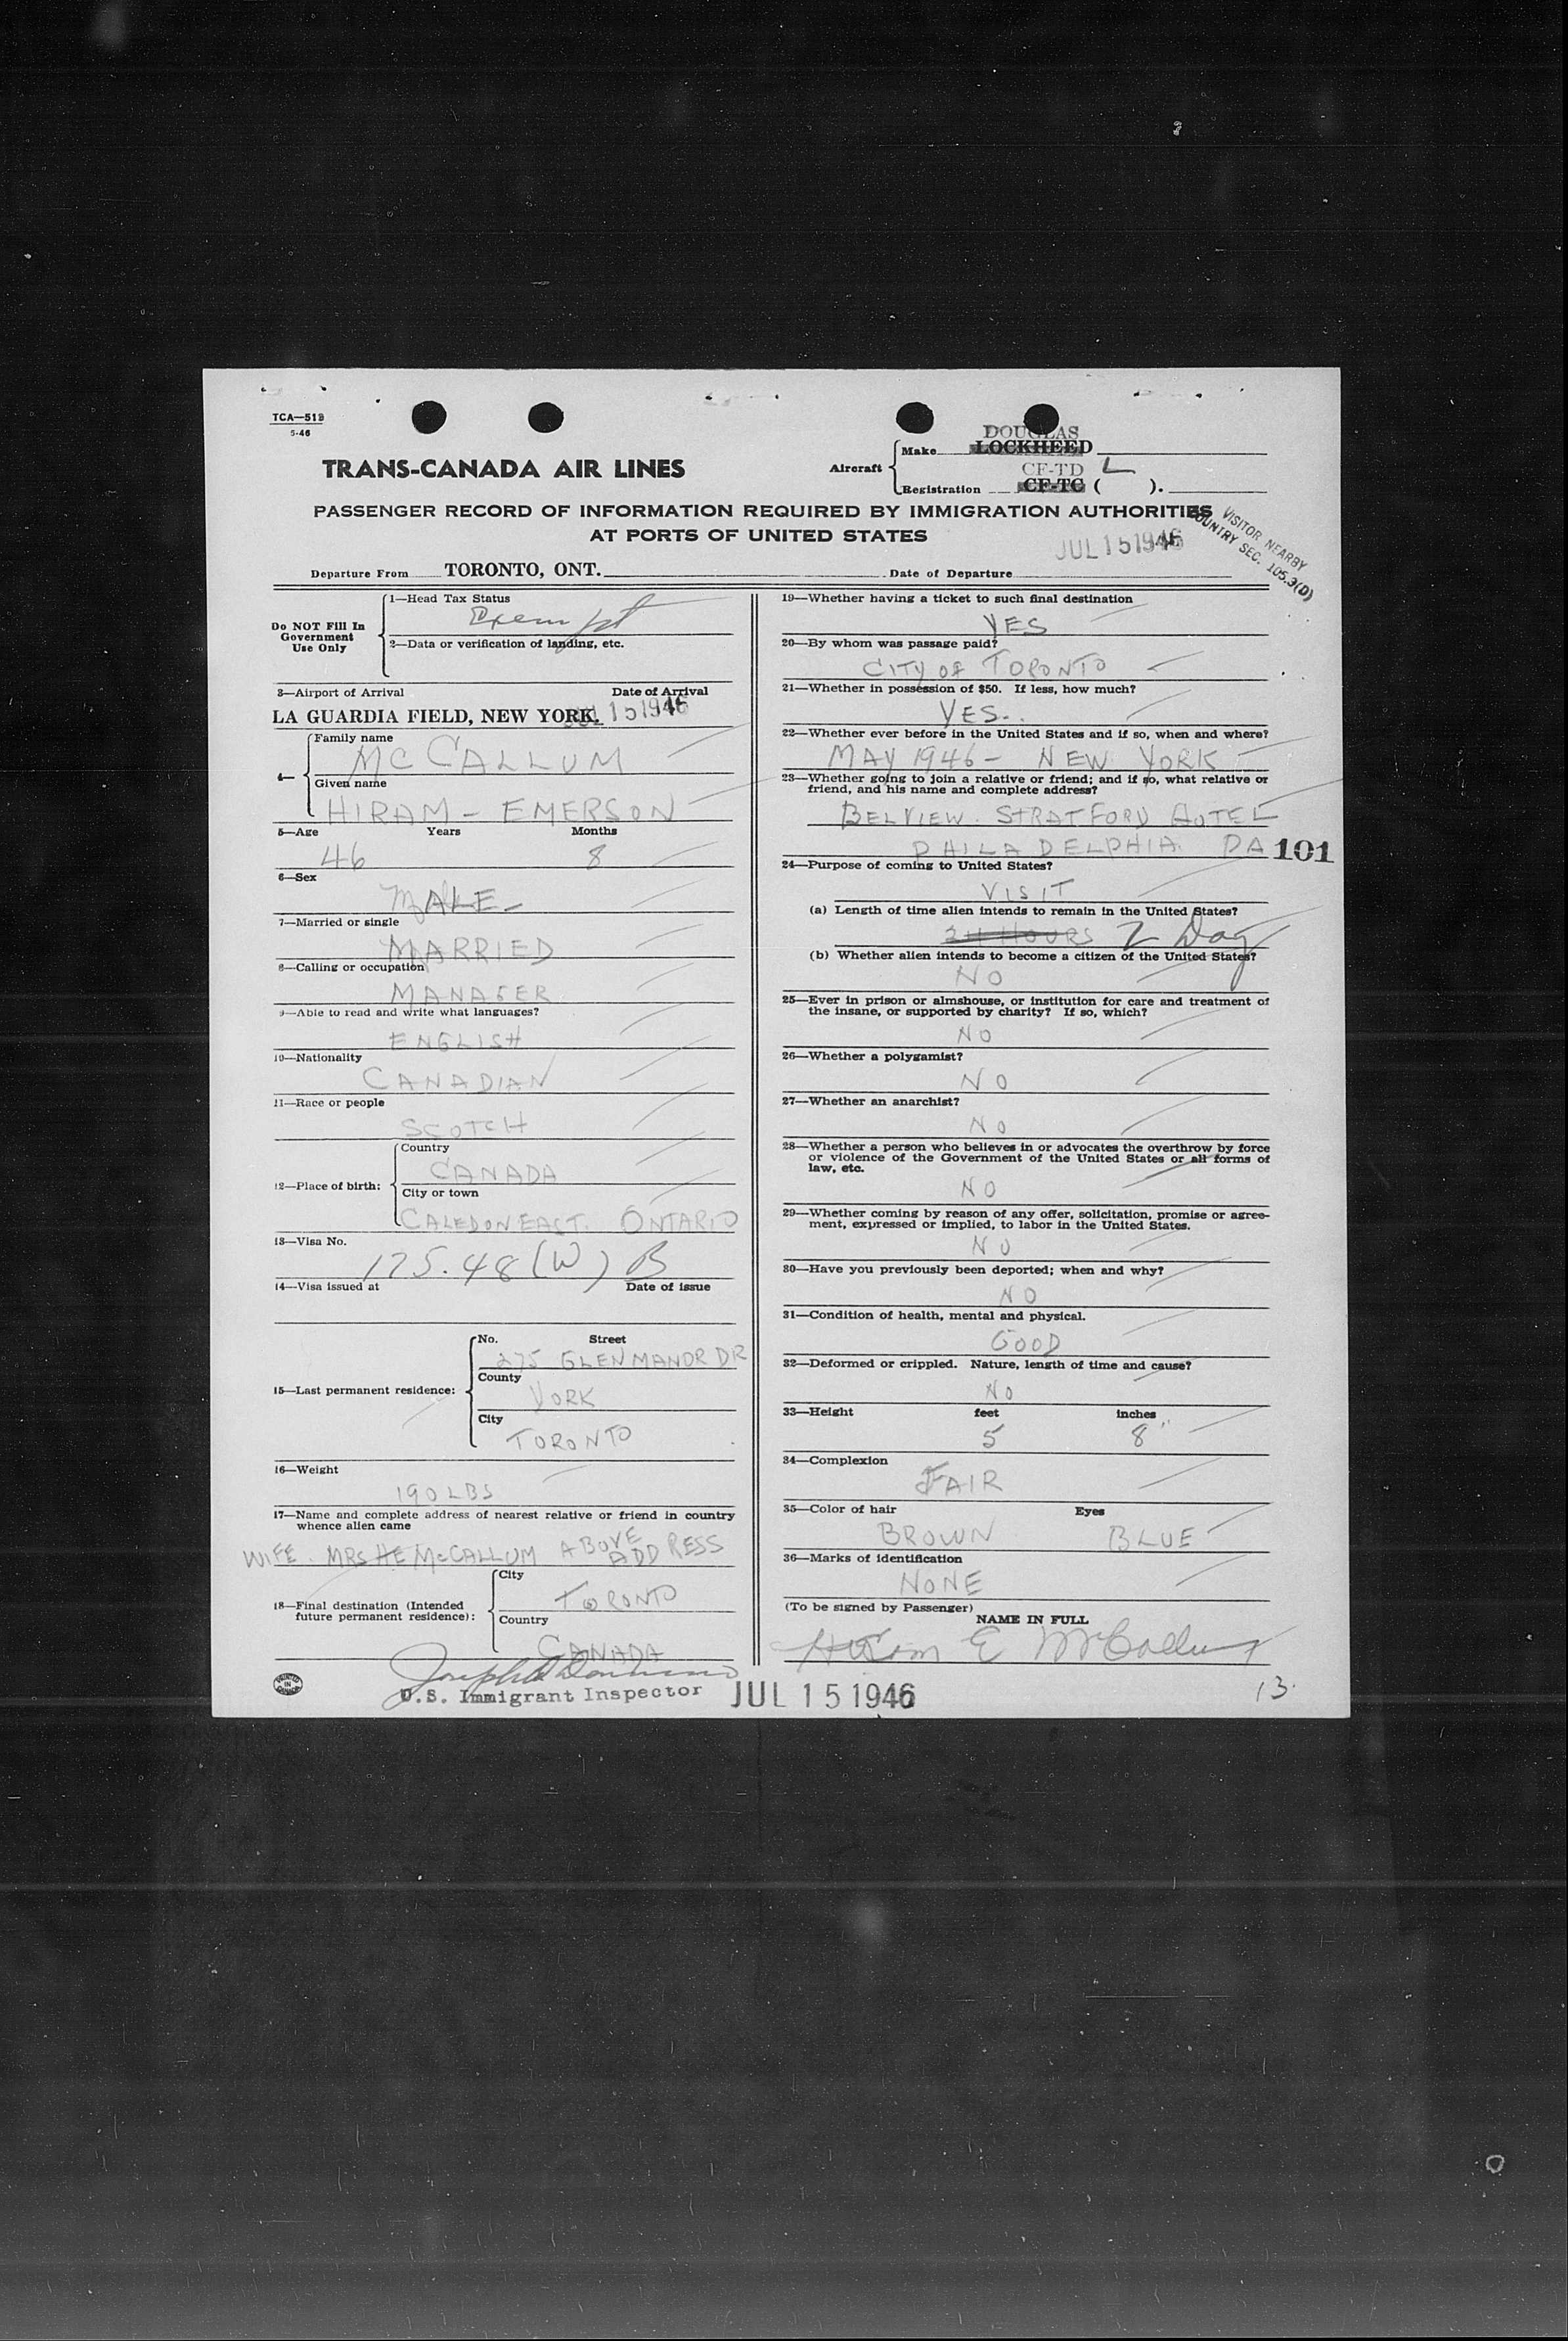 TCA—519
5-46
TRANS-CANADA AIR LINES
Aircraft
Make
DOUGLAS
LOCKHEED
CF-TD L
Registration CF-TC ( ).
PASSENGER RECORD OF INFORMATION REQUIRED BY IMMIGRATION AUTHORITIES
AT PORTS OF UNITED STATES
JUL 15 1946
VISITOR NEARBY
COUNTRY SEC. 105.3(D)
Departure From TORONTO, ONT. Date of Departure
Do NOT Fill In
Government
Use Only
1—Head Tax Status
Exempt
2—Data or verification of landing, etc.
3—Airport of Arrival Date of Arrival
LA GUARDIA FIELD, NEW YORK, JUL 15 1946
4—
Family name
MC CALLUM
Given name
HIRAM - EMERSON
5—Age Years Months
46 8
6—Sex
MALE
7—Married or single
MARRIED
8—Calling or occupation
MANAGER
9—Able to read and write what languages?
ENGLISH
10—Nationality
CANADIAN
11—Race or people
SCOTCH
12—Place of birth:
Country
CANADA
City or town
CALEDON EAST. ONTARIO
13—Visa No.
175.48 (W) B
14—Visa issued at Date of issue
15—Last permanent residence:
No. Street
275 GLEN MANOR DR
County
YORK
City
TORONTO
16—Weight
190 LBS
17—Name and complete address of nearest relative or friend in country
whence alien came
WIFE. MRS HE McCALLUM ABOVE
ADDRESS
18—Final destination (Intended
future permanent residence):
City
TORONTO
Country
CANADA
U.S. Immigrant Inspector
JUL 15 1946
19—Whether having a ticket to such final destination
YES
20—By whom was passage paid?
CITY OF TORONTO
21—Whether in possession of $50. If less, how much?
YES.
22—Whether ever before in the United States and if so, when and where?
MAY 1946 - NEW YORK
23—Whether going to join a relative or friend; and if so, what relative or
friend, and his name and complete address?
BELVIEW. STRATFORD HOTEL
PHILADELPHIA PA
101
24—Purpose of coming to United States?
VISIT
(a) Length of time alien intends to remain in the United States?
24 HOURS 2 Day
(b) Whether alien intends to become a citizen of the United States?
NO
25—Ever in prison or almshouse, or institution for care and treatment of
the insane, or supported by charity? If so, which?
NO
26—Whether a polygamist?
NO
27—Whether an anarchist?
NO
28—Whether a person who believes in or advocates the overthrow by force
or violence of the Government of the United States or all forms of
law, etc.
NO
29—Whether coming by reason of any offer, solicitation, promise or agree-
ment, expressed or implied, to labor in the United States.
NO
30—Have you previously been deported; when and why?
NO
31—Condition of health, mental and physical.
GOOD
32—Deformed or crippled. Nature, length of time and cause?
NO
33—Height feet inches
5 8"
34—Complexion
FAIR
35—Color of hair Eyes
BROWN BLUE
36—Marks of identification
NONE
(To be signed by Passenger)
NAME IN FULL
Hiram E McCallum
13.